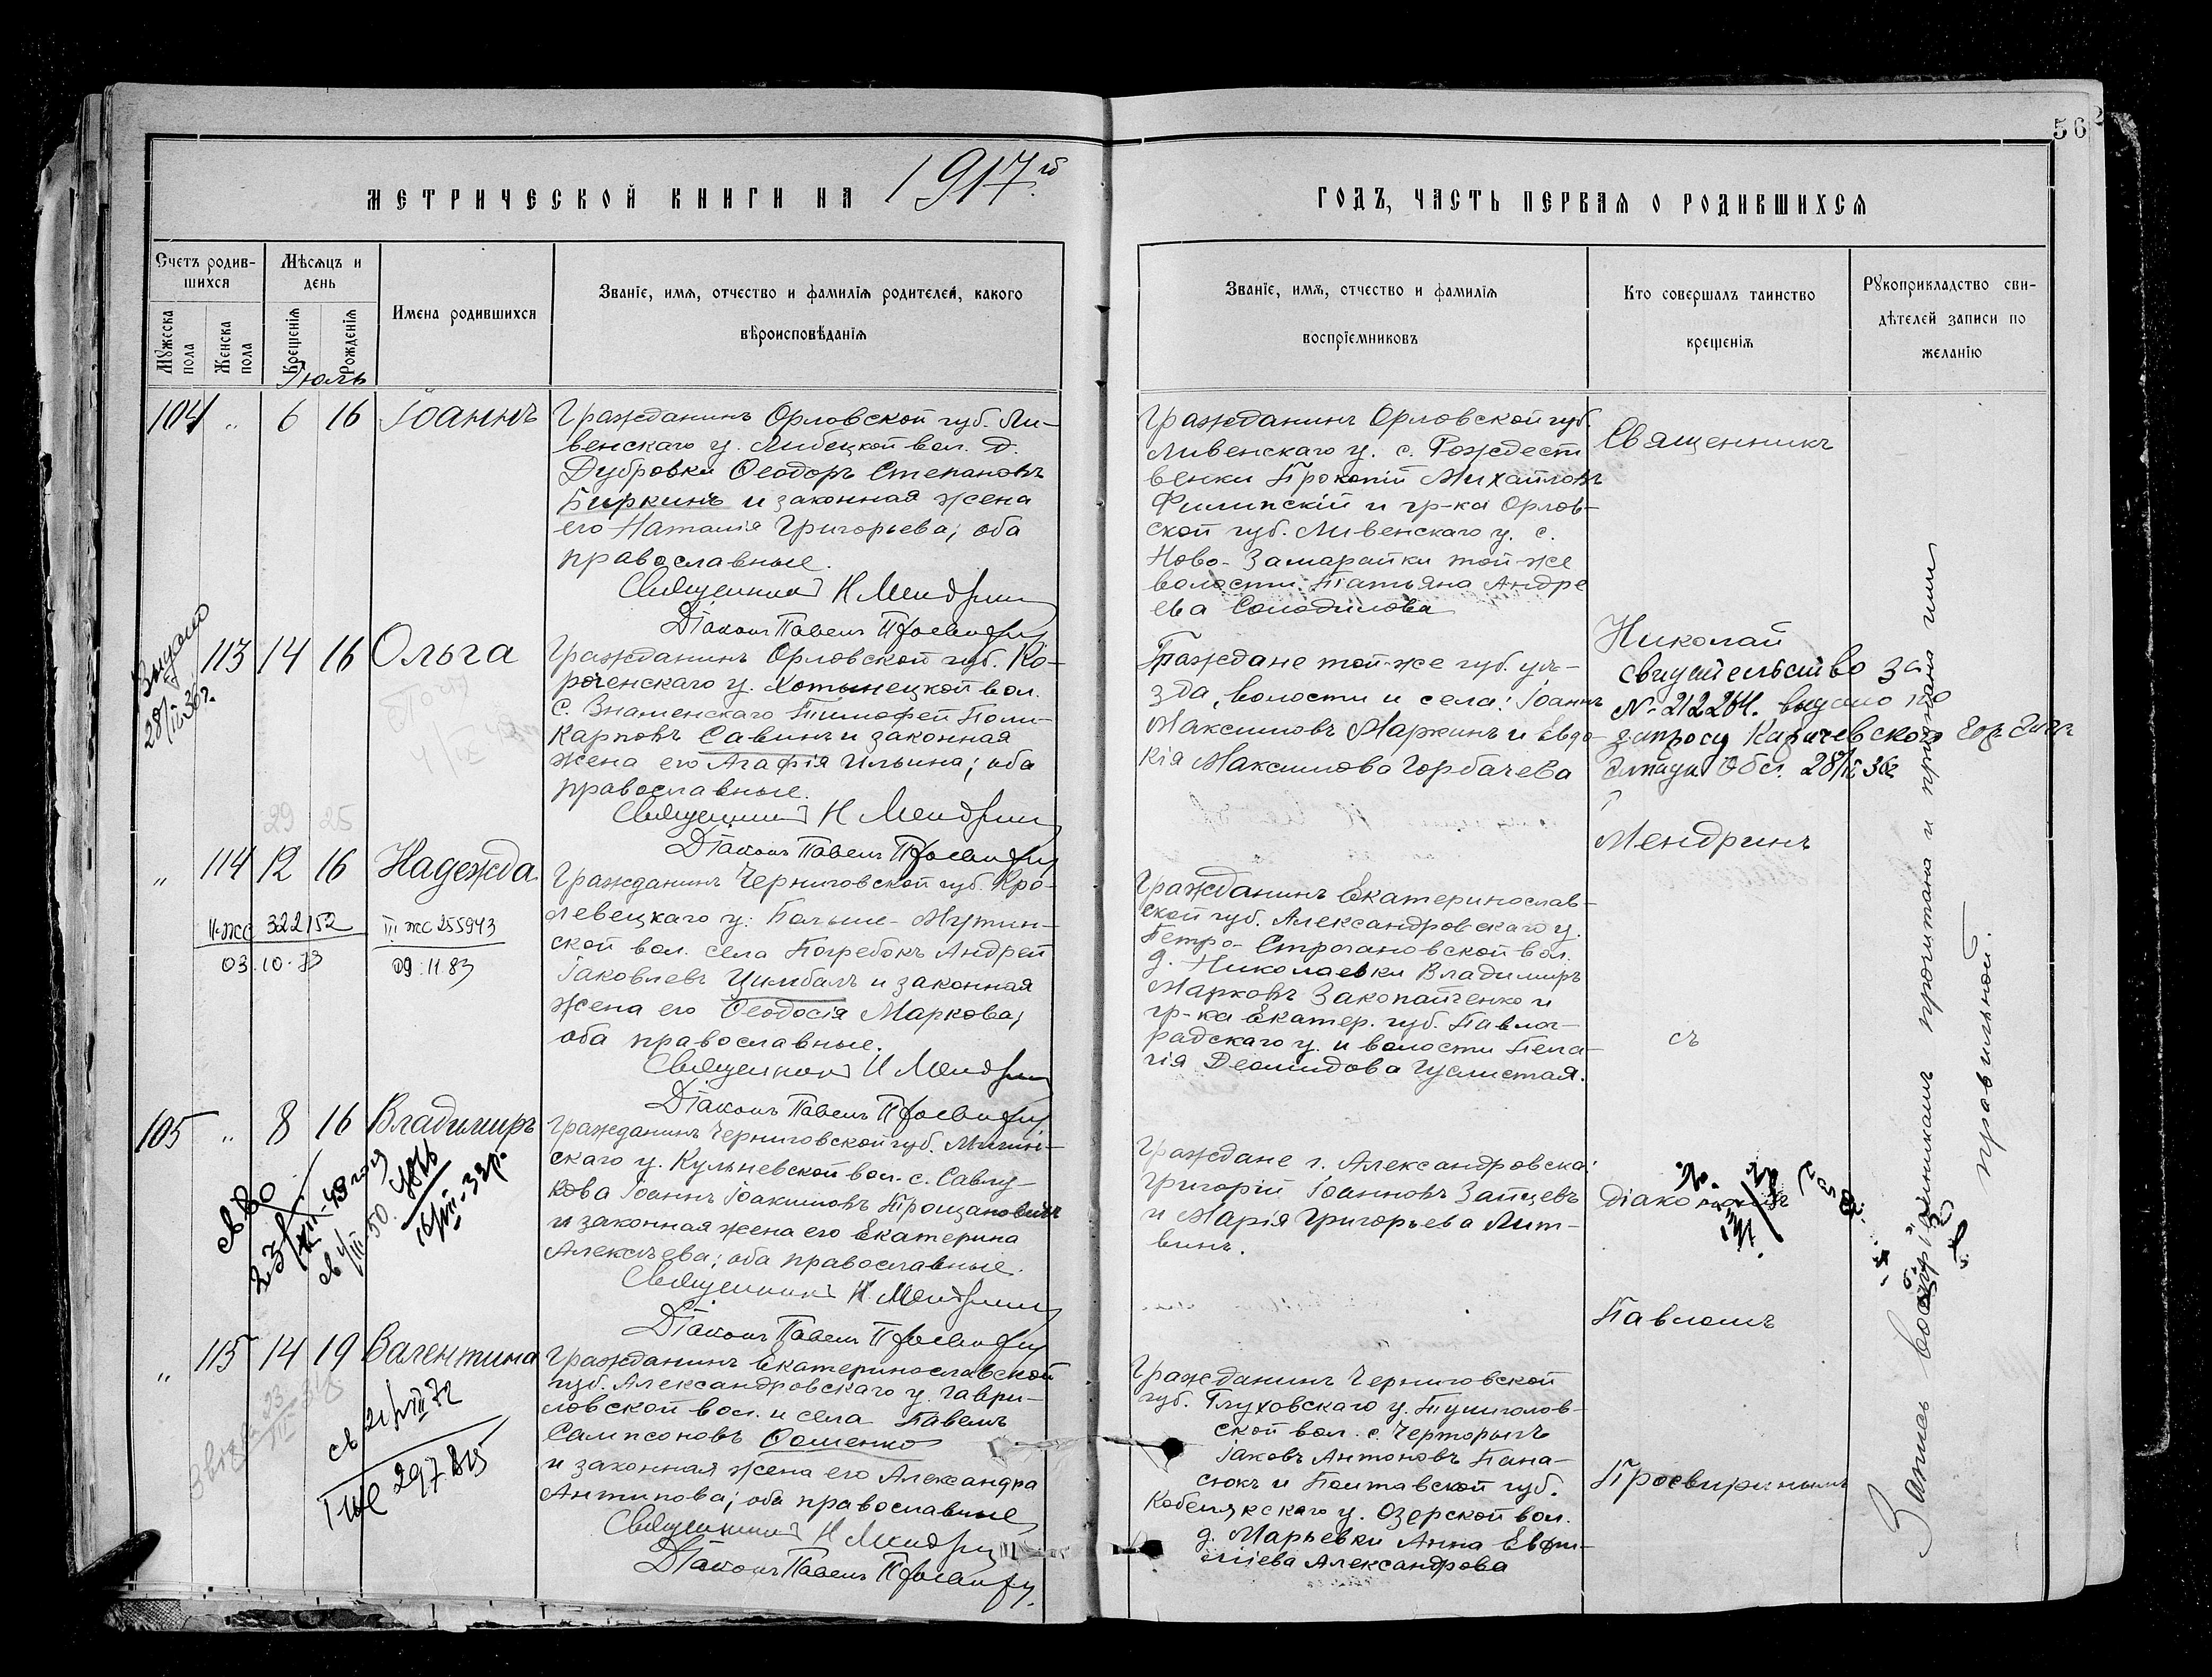 562
МЕТРИЧЕСКОЙ КНИГИ НА 1917й
ГОДЪ, ЧАСТЬ ПЕРВАЯ О РОДИВШИХСЯ
Счетъ родив-
шихся
Мужеска пола
Женска пола
Мѣсяцъ и
день
Крещенія
Рожденія
Имена родившихся
Званіе, имя, отчество и фамилія родителей, какого
вѣроисповѣданія
Званіе, имя, отчество и фамилія
воспріемниковъ
Кто совершалъ таинство
крещенія
Рукоприкладство сви-
дѣтелей записи по
желанію
Іюль
104 " 6 16 Іоаннъ
Гражданинъ Орловской губ. Ли-
венскаго у. Липецкой вол. д.
Дубровки Ѳеодоръ Степановъ
Биркинъ и законная жена
его Наталія Григорьева; оба
православные.
Священникъ Н Мендрин
Діаконъ Павелъ
Гражданинъ Орловской губ.
Ливенскаго у. с. Рождест
венки Прокопій Михайловъ
Филипскій и гр-ка Орлов-
ской губ. Ливенскаго у. с.
Ново-Замарайки той-же
волости Татьяна Андре
ева Солодилова
Священникъ
113 14 16 Ольга
28/IX 36г.
Гражданинъ Орловской губ. Ко-
роченскаго у. Хотынецкой вол.
С. Знаменскаго Тимофей Поли-
карповъ Савинъ и законная
жена его Агафія Ильина; оба
православные.
Священникъ Н Мендрин
Діаконъ Павелъ
Граждане той-же губ. уѣ-
зда, волости и села: Іоаннъ
Максимовъ Маркинъ и Евдо-
кія Максимова Горбачева
Николай
свидетельство за
№ 212264. выдано по
запросу Карачевского
28/IX 36г
Мендринъ
29 25
" 114 12 16 Надежда
322152
03.10.73
III жс 255943
09.11.83
Гражданинъ Черниговской губ. Кро-
левецкаго у. Больше-Мутин-
ской вол. села Погребокъ Андрей
Іаковлевъ Цимбалъ и законная
жена его Ѳеодосія Маркова;
оба православные.
Священникъ Н Мендрин
Діаконъ Павелъ
Гражданинъ Екатеринослав-
ской губ. Александровскаго у.
Петро-Строгановской вол.
д. Николаевки Владимиръ
Марковъ Закопайченко и
гр-ка Екатер. губ. Павлог-
радскаго у. и волости Пела-
гія Деомидова Гуслистая.
съ
105 " 8 16 Владимиръ
Гражданинъ Черниговской губ. Мглин-
скаго у. Кульневской вол. с. Савлу-
кова Іоаннъ Іоакимовъ Трощановичъ
и законная жена его Екатерина
Алексѣева; оба православные.
Священникъ Н. Мендрин
Діаконъ Павелъ
Граждане г. Александровска:
Григорій Іоанновъ Зайцевъ
и Марія Григорьева Лит-
винъ.
Павломъ
" 115 14 19 Валентина
св 21/VIII 72
297815
Гражданинъ Екатеринославской
губ. Александровскаго у. Гаври-
ловской вол. и села Павелъ
Сампсоновъ Ѳоменко
и законная жена его Александра
Антипова; оба православные
Священникъ Н Мендрин
Діаконъ Павелъ
Гражданинъ Черниговской
губ. Глуховскаго у. Тулиголов-
ской вол. с. Черторыгъ
Іаковъ Антоновъ Пана-
сюкъ и Полтавской губ.
Кобелякскаго у. Озерской вол.
д. Марьевки Анна Евфи-
міева Александрова
Просвиринымъ
Запись воспріемникамъ прочитана и признана ими
правильной.